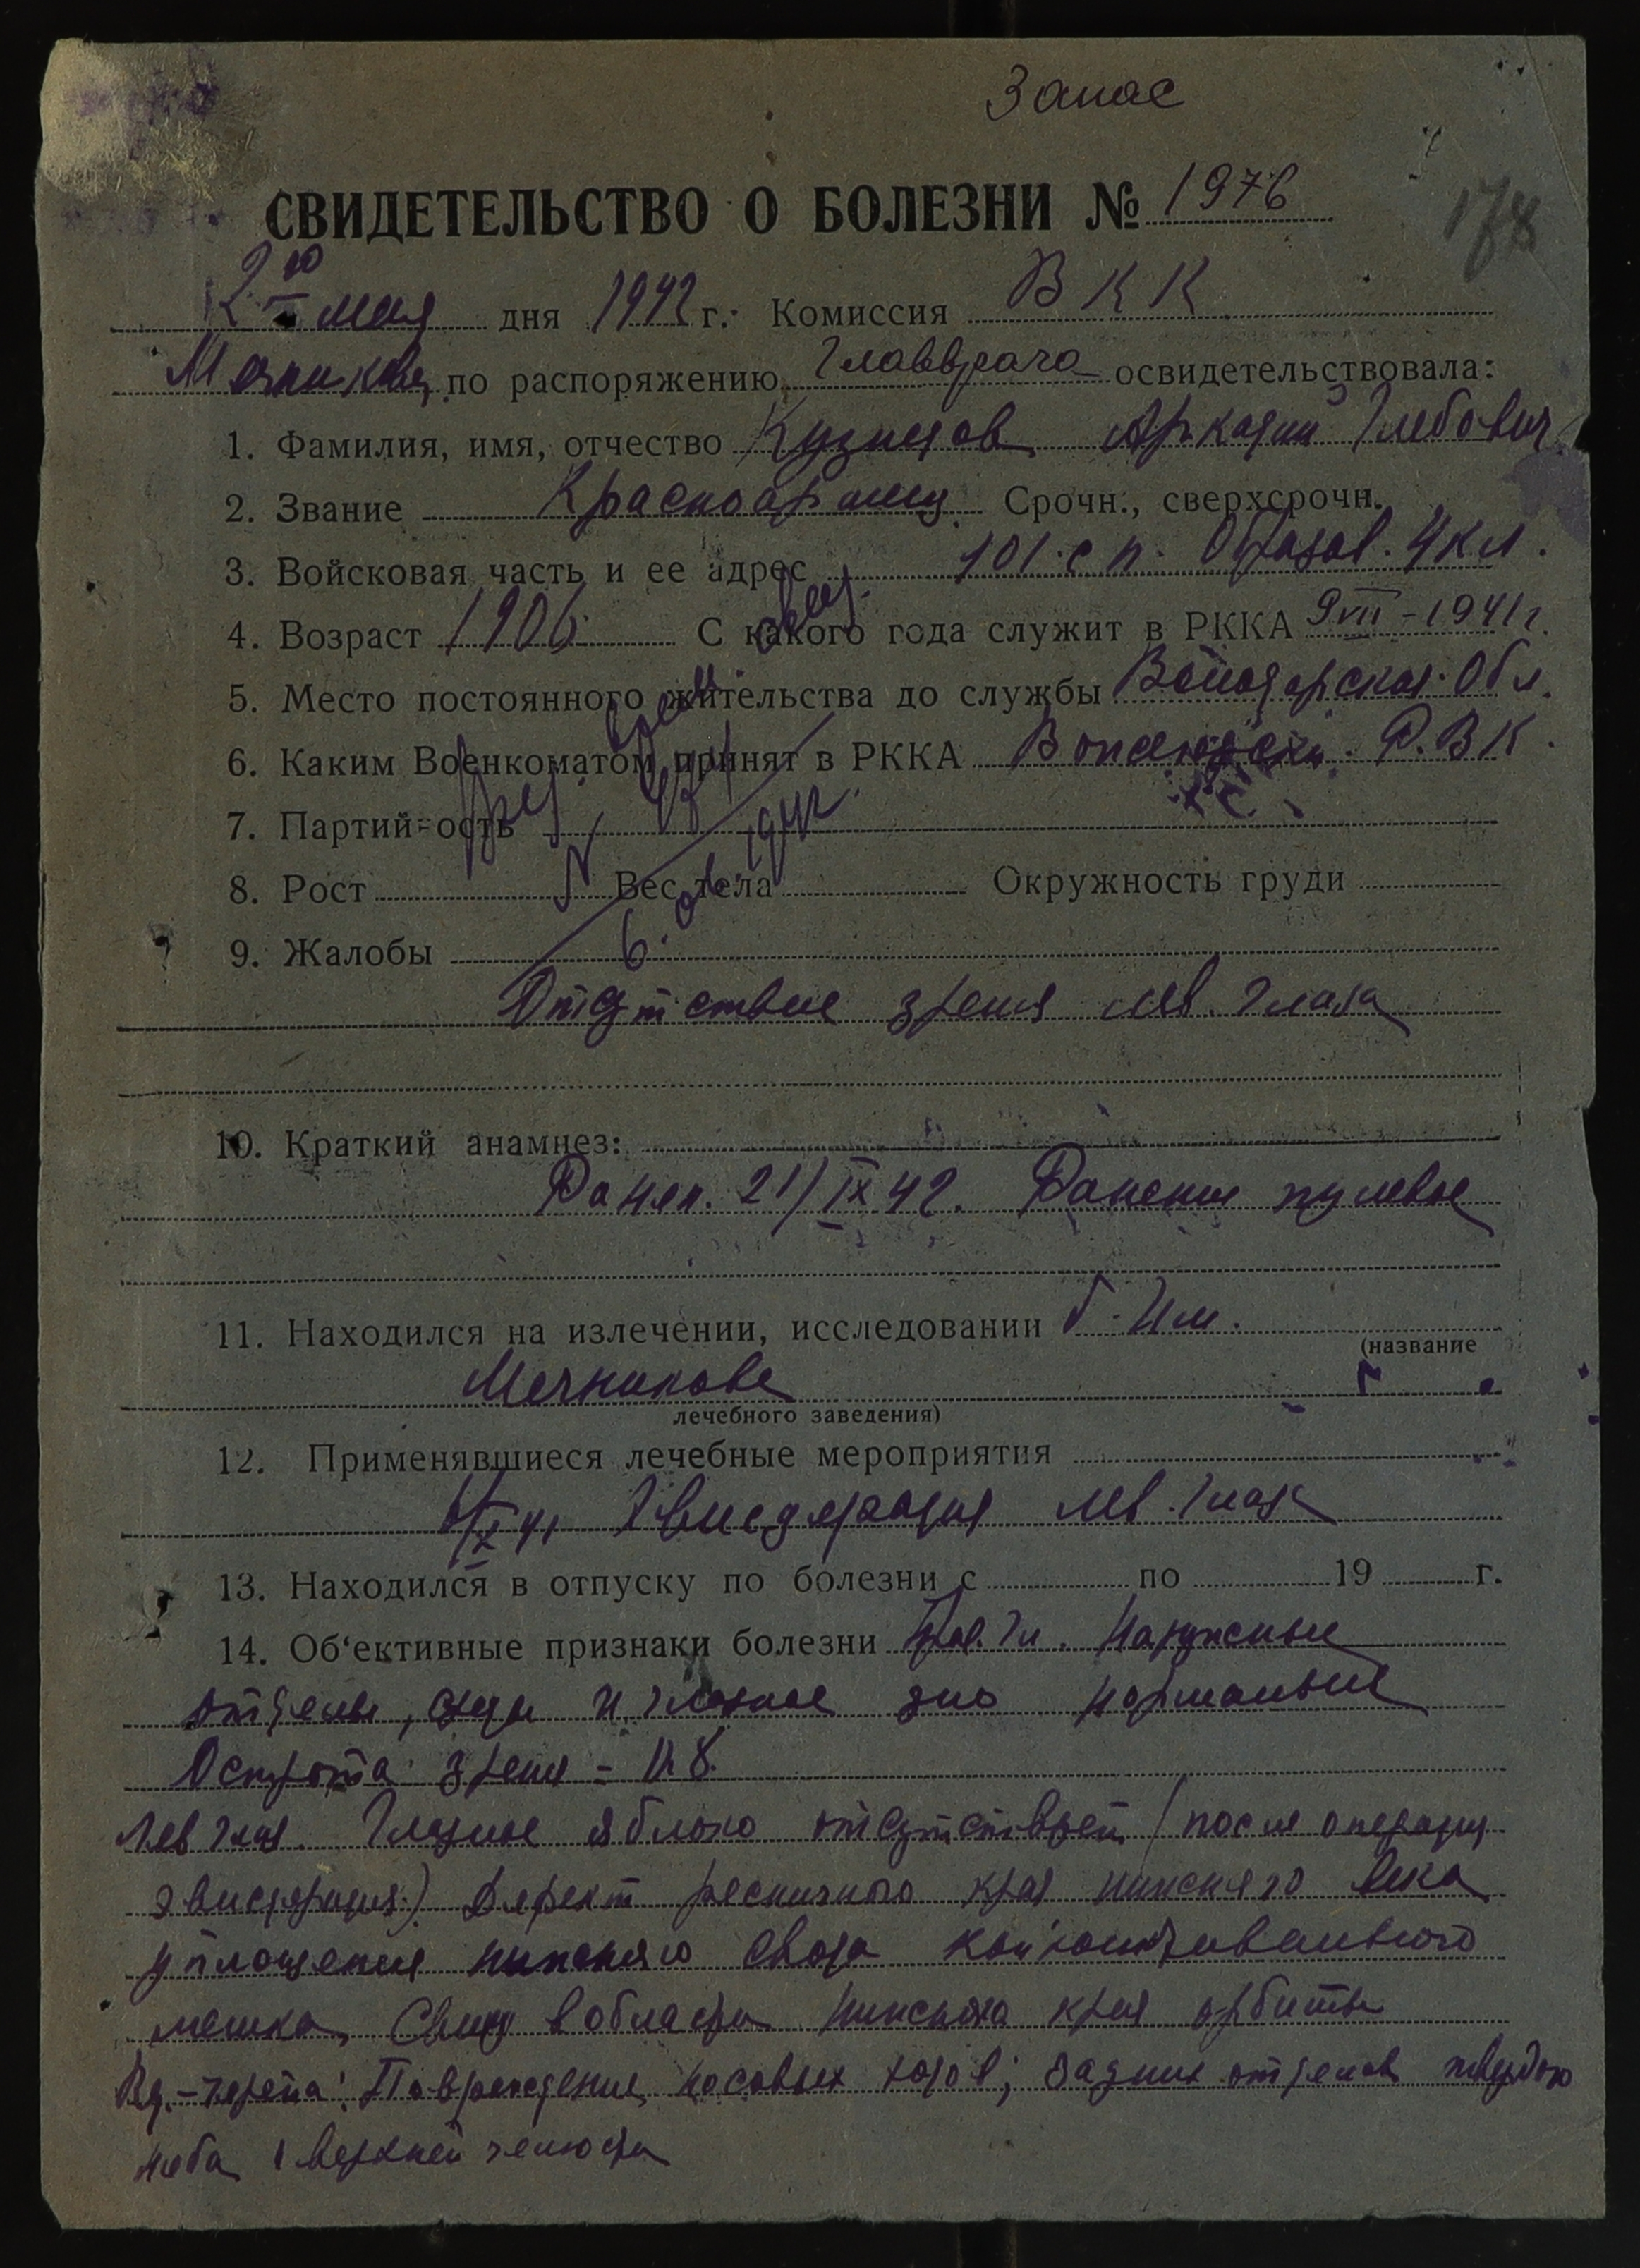 Запас
СВИДЕТЕЛЬСТВО О БОЛЕЗНИ № 1976
178
2го мая дня 1942 г. Комиссия ВКК
по распоряжению Главврача освидетельствовала:
1. Фамилия, имя, отчество Кузнецов Аркадий Глебович
2. Звание Красноармеец Срочн., сверхсрочн.
3. Войсковая часть и ее адрес 101 с п. Образов. 4 кл.
4. Возраст 1906 С какого года служит в РККА 9 VII - 1941 г.
5. Место постоянного жительства до службы Вологодская Обл.
6. Каким Военкоматом принят в РККА Р.В.К.
7. Партий-ость
8. Рост Вес тела Окружность груди
9. Жалобы
Отсутствие зрения лев. глаза
10. Краткий анамнез:
Ранен. 21/IX 42. Ранение пулевое
11. Находился на излечении, исследовании Б. Им.
(название
Мечникова
лечебного заведения)
12. Применявшиеся лечебные мероприятия
Эвисцерация лев. глаза
13. Находился в отпуску по болезни с по 19 г.
14. Об‘ективные признаки болезни Прав. Гл. Наружные
отделы, среды и глазное дно нормальные
Острота зрения = 0.8.
Лев глаз. Глазное яблоко отсутствует (после операции
эвисцерация) Дефект ресничного края нижнего века
уплощения нижнего свода конъюнктивального
мешка, Свищ в области нижнего края орбиты
Повреждения носовых ходов; задних отделов твердого
неба и верхней челюсти